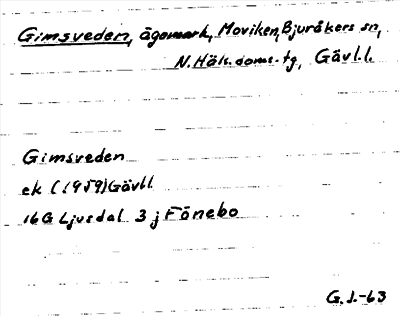 Gimsveden, ägomark, Moviken, Bjuråkers sn,
N. Häls. doms.-tg, Gävl.l.
Gimsveden
ek (1959) Gävl.l
16G Ljusdal 3 j Fönebo
G.J.-63